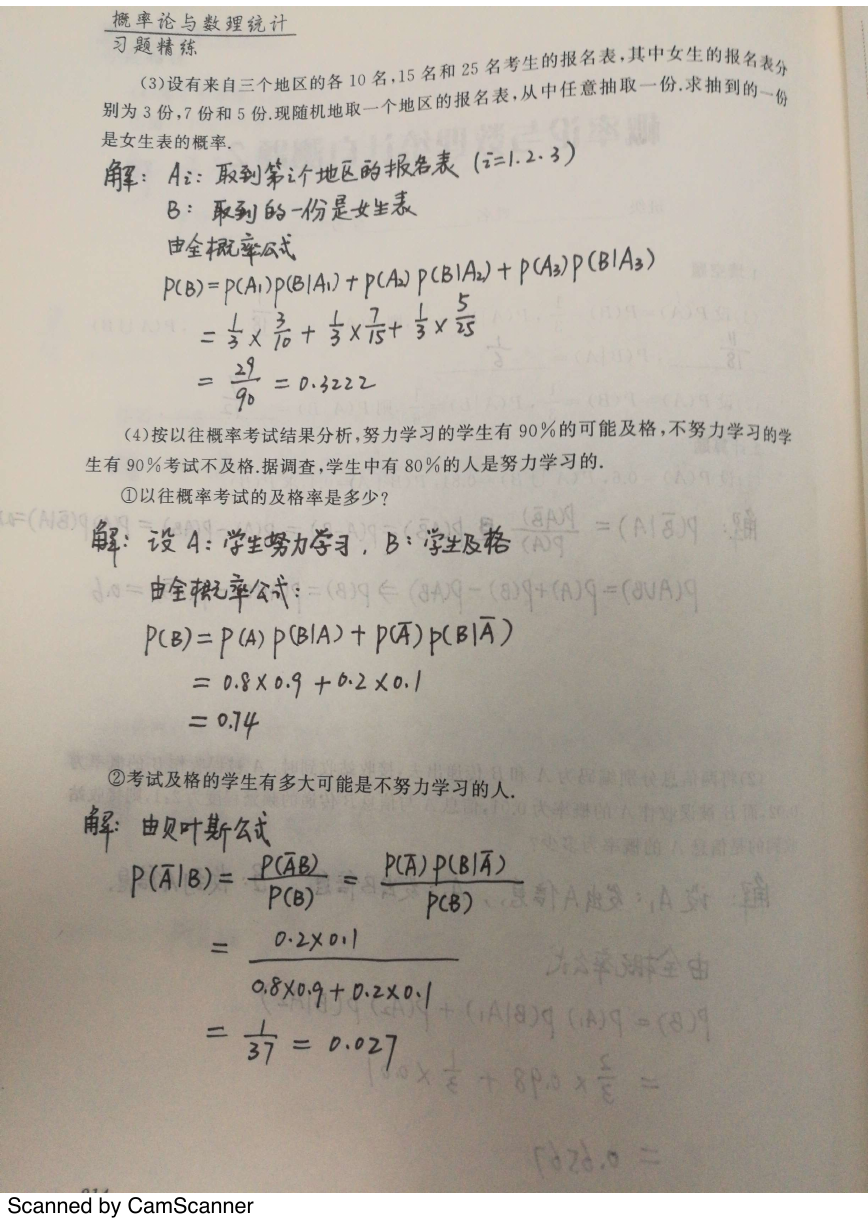 概率论与数理统计
习题精练
(3)设有来自三个地区的各 10 名,15 名和 25 名考生的报名表,其中女生的报名表分
别为 3 份,7 份和 5 份.现随机地取一个地区的报名表,从中任意抽取一份.求抽到的一份
是女生表的概率.
解: Ai: 取到第i个地区的报名表 (i=1.2.3)
B: 取到的一份是女生表
由全概率公式
P(B)=P(A₁)P(B|A₁)+P(A₂)P(B|A₂)+P(A₃)P(B|A₃)
= 1/3 × 3/10 + 1/3 × 7/15 + 1/3 × 5/25
= 29/90 = 0.3222
(4)按以往概率考试结果分析,努力学习的学生有 90%的可能及格,不努力学习的学
生有 90%考试不及格.据调查,学生中有 80%的人是努力学习的.
①以往概率考试的及格率是多少?
解: 设 A: 学生努力学习, B: 学生及格
由全概率公式:
P(B)=P(A)P(B|A)+P(Ā)P(B|Ā)
= 0.8×0.9+0.2×0.1
= 0.74
②考试及格的学生有多大可能是不努力学习的人.
解: 由贝叶斯公式
P(Ā|B)= P(ĀB)/P(B) = P(Ā)P(B|Ā)/P(B)
= 0.2×0.1/0.8×0.9+0.2×0.1
= 1/37 = 0.027
Scanned by CamScanner